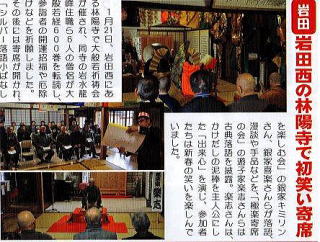 岩田
岩田西の林陽寺で初笑い寄席
1月21日、岩田西にあ
る林陽寺で大般若祈祷会
が催され、同寺の岩水龍
峰住職ら60人の僧侶が大
般若経600巻を転読し、
参詣者の開運招福や厄除
けなどを祈願しました。
その後には寄席が開かれ、
「シルバー落語小ばなし
を楽しむ会」の銀家キミリン
さん、銀家喜楽さんらが落語、
漫談や手品などを、「極楽寄席
の会」の遊子家楽志さんらは
古典落語を披露。楽志さんは
かけだしの泥棒を主人公にし
た「出来心」を演じ、参加者
たちは新春の笑いを楽しんで
いました。